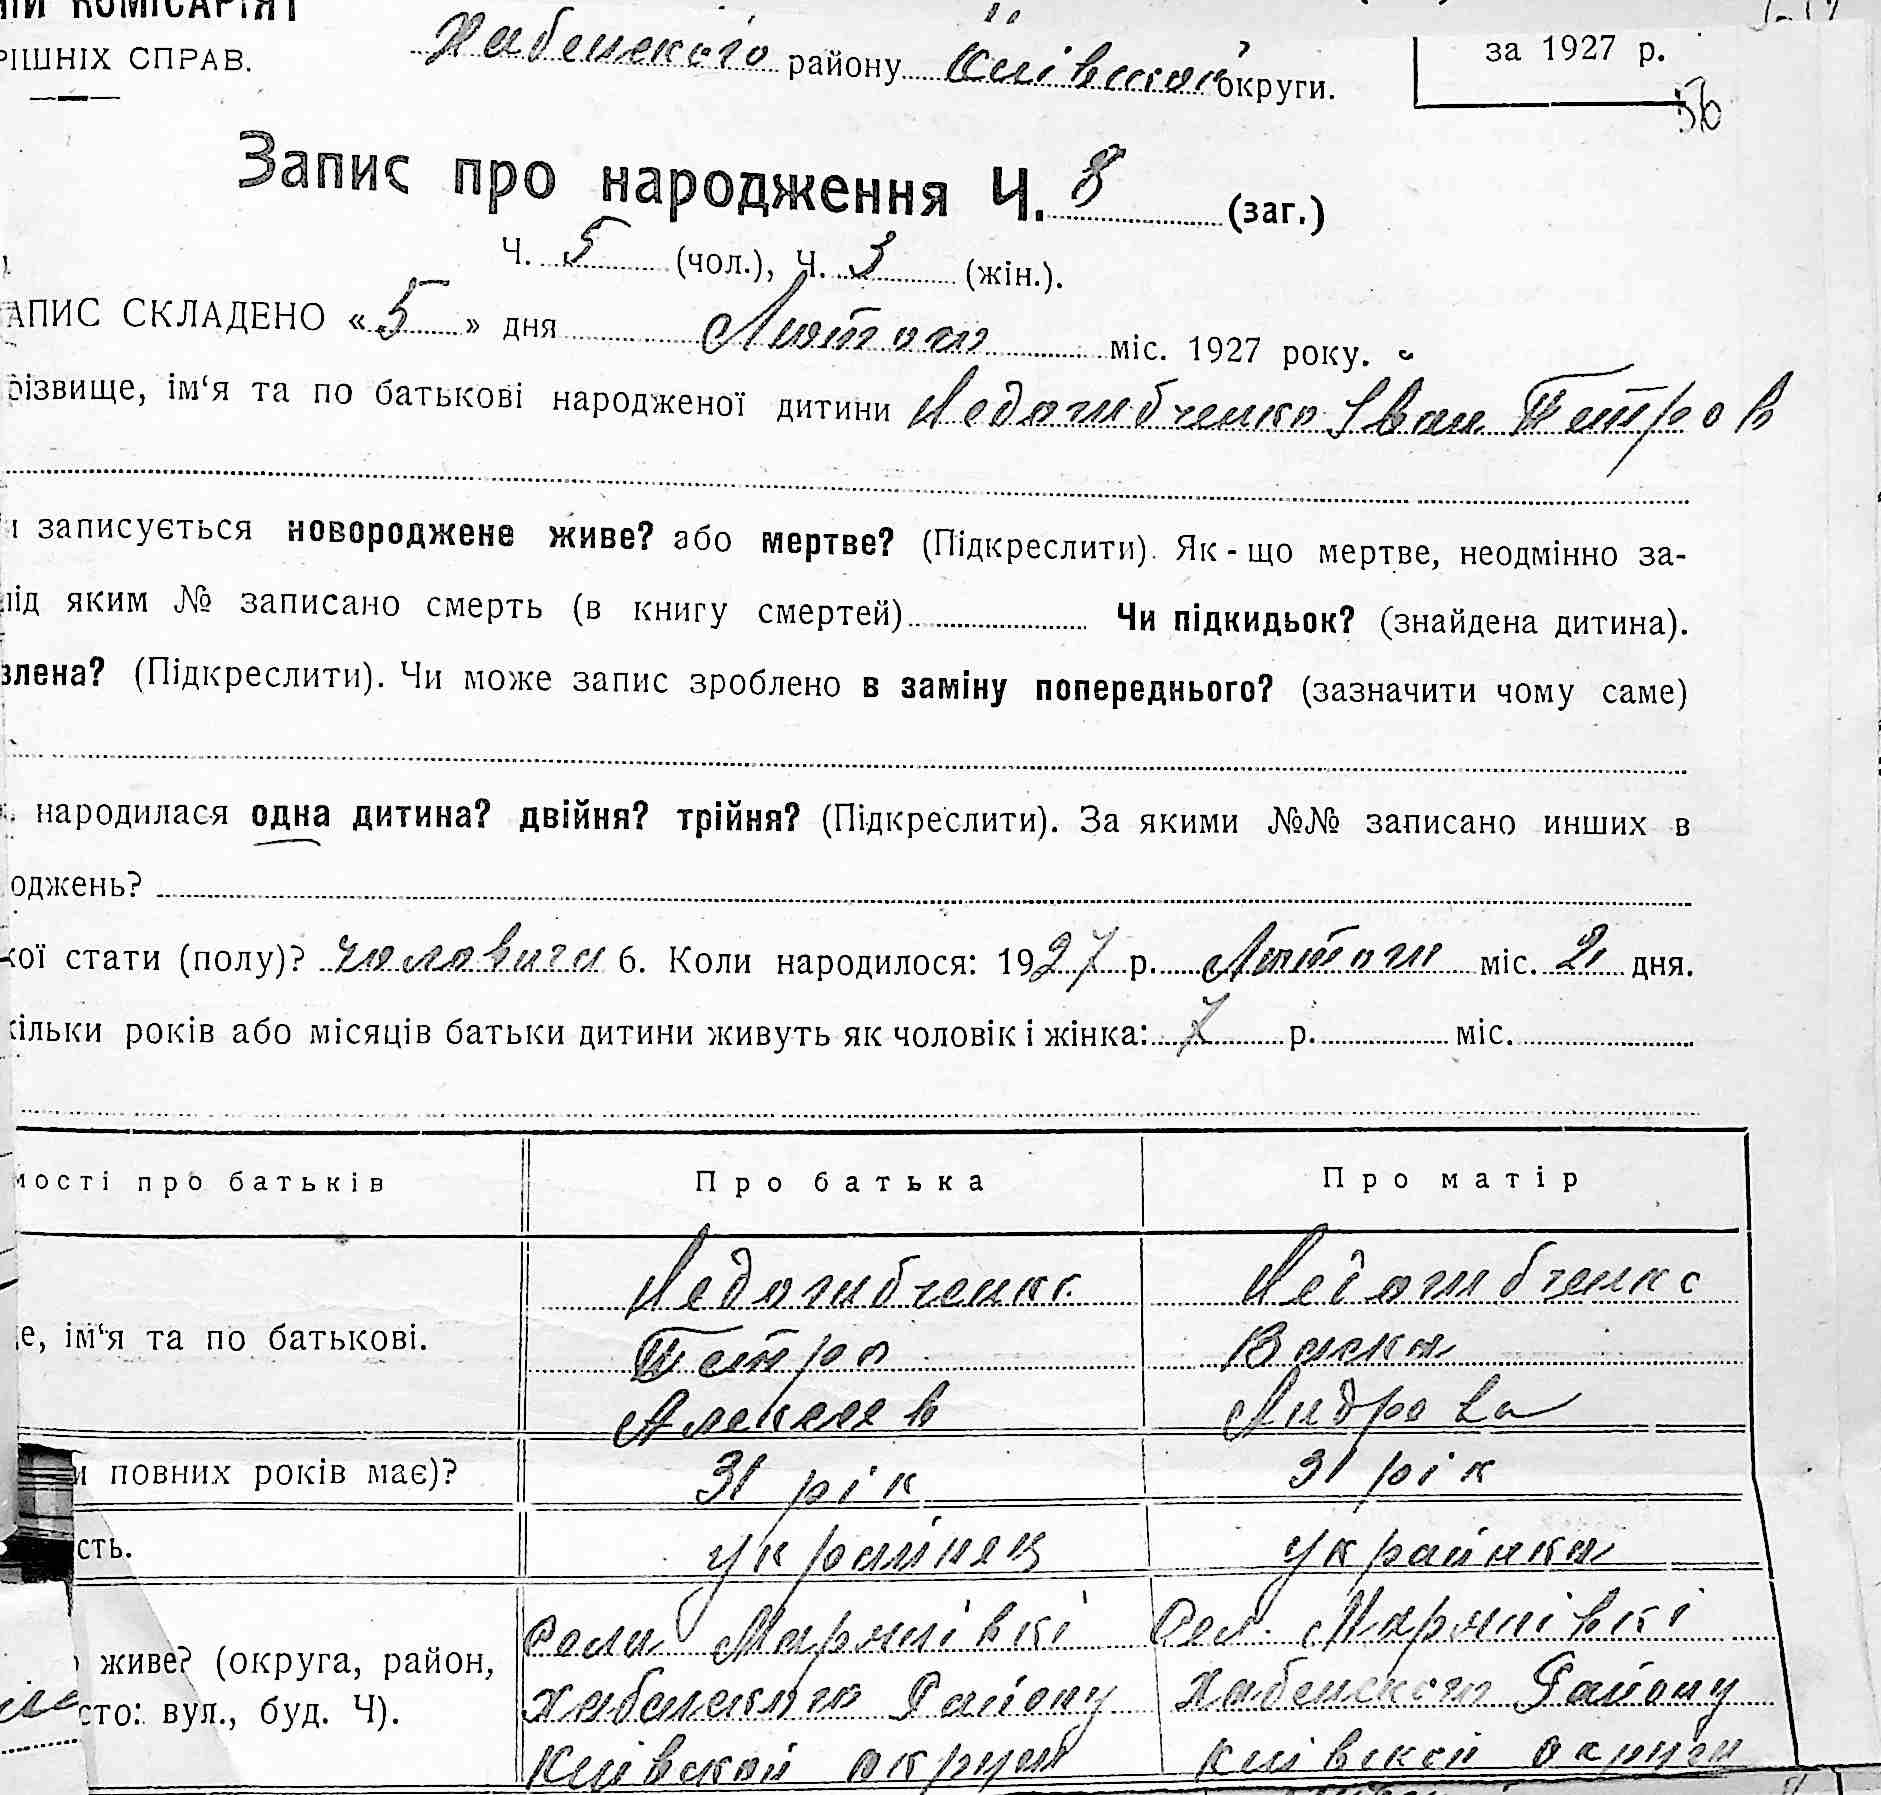 ИЙ КОМІСАРІЯТ
РІШНІХ СПРАВ.
Хабенского району Київской округи.
за 1927 р.
56
Запис про народження Ч. 8 (заг.)
Ч. 5 (чол.), Ч. 3 (жін.).
АПИС СКЛАДЕНО «5» дня Лютого міс. 1927 року.
різвище, ім‘я та по батькові народженої дитини Недогибченко Іван Петров
записується новороджене живе? або мертве? (Підкреслити). Як-що мертве, неодмінно за-
під яким № записано смерть (в книгу смертей) Чи підкидьок? (знайдена дитина).
влена? (Підкреслити). Чи може запис зроблено в заміну попереднього? (зазначити чому саме)
народилася одна дитина? двійня? трійня? (Підкреслити). За якими №№ записано инших в
оджень?
кої стати (полу)? чоловичи 6. Коли народилося: 1927 р. Лютого міс. 2 дня.
кільки років або місяців батьки дитини живуть як чоловік і жінка: 7 р. міс.
мості про батьків Про батька Про матір
Недогибченко Недогибченко
е, ім‘я та по батькові. Петро Васка
Алексеев Андрова
м повних років має)? 31 рік 31 рік
сть. украінец украінка
Села Марянівкі Сел. Марянівкі
живе? (округа, район, Хабенского Району Хабенского Району
сто: вул., буд. Ч).
Київской округи Київской округи